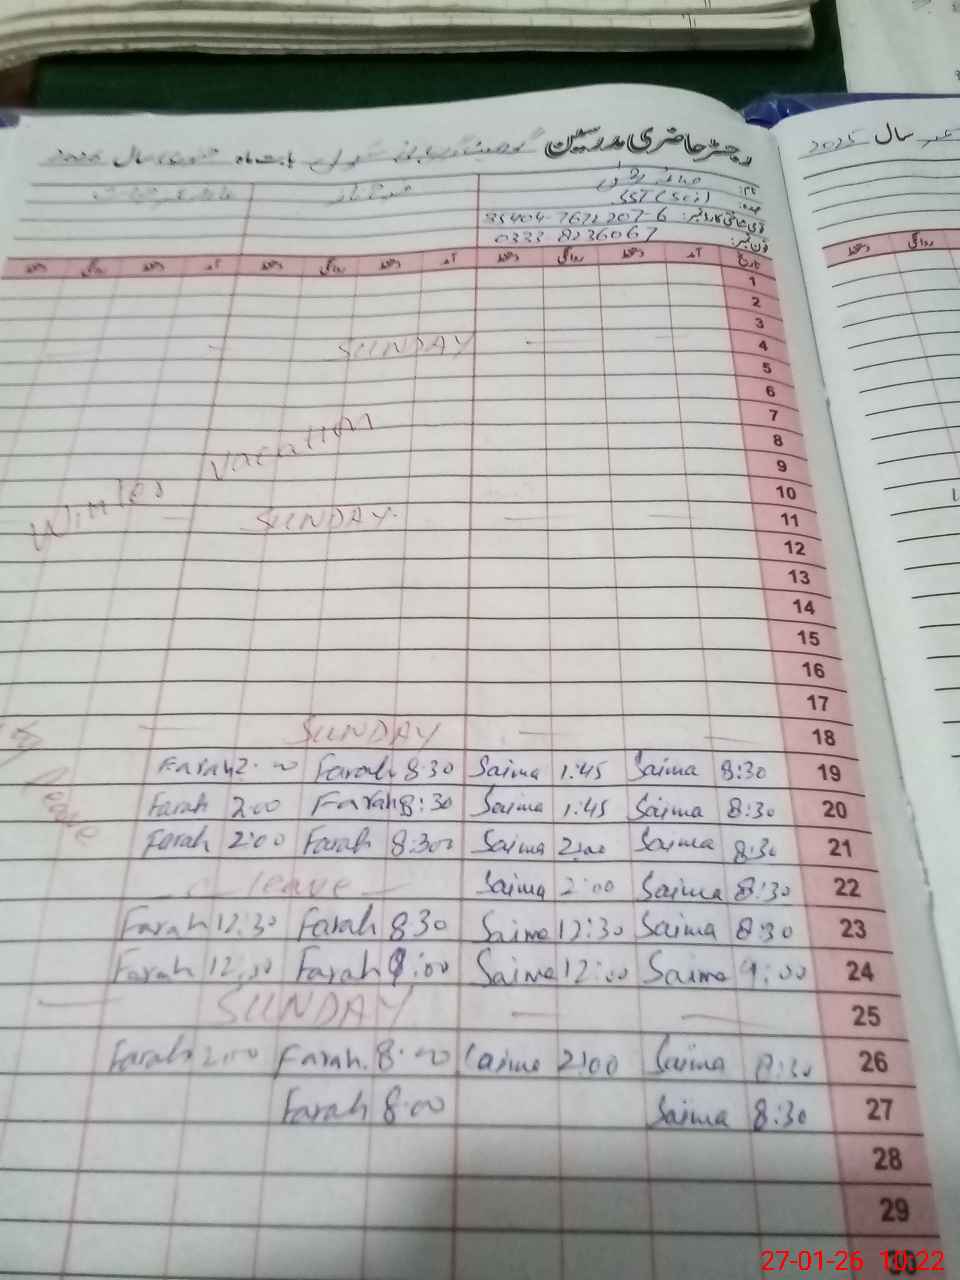 رجسٹر حاضری مدرسین بابت ماہ سال
سال 2025
نام:
عہدہ: SST (Sci)
قومی شناختی کارڈ نمبر: 35404-7622207-6
فون نمبر: 0333-8236067
تاریخ آمد دستخط روانگی دستخط آمد دستخط روانگی دستخط آمد دستخط روانگی دستخط
روانگی دستخط
1
2
3
SUNDAY 4
5
6
7
Winter vacation
8
9
10
SUNDAY 11
12
13
14
15
16
17
SUNDAY 18
Farah 2:00 Farah 8:30 Saima 1:45 Saima 8:30 19
Farah 2:00 Farah 8:30 Saima 1:45 Saima 8:30 20
leave
Farah 2:00 Farah 8:300 Saima 2:00 Saima 8:30 21
leave Saima 2:00 Saima 8:30 22
Farah 12:30 Farah 8:30 Saima 12:30 Saima 8:30 23
Farah 12:00 Farah 9:00 Saima 12:00 Saima 9:00 24
SUNDAY 25
Farah 2:00 Farah 8:00 Saima 2:00 Saima 8:30 26
Farah 8:00 Saima 8:30 27
28
29
27-01-26 10:22